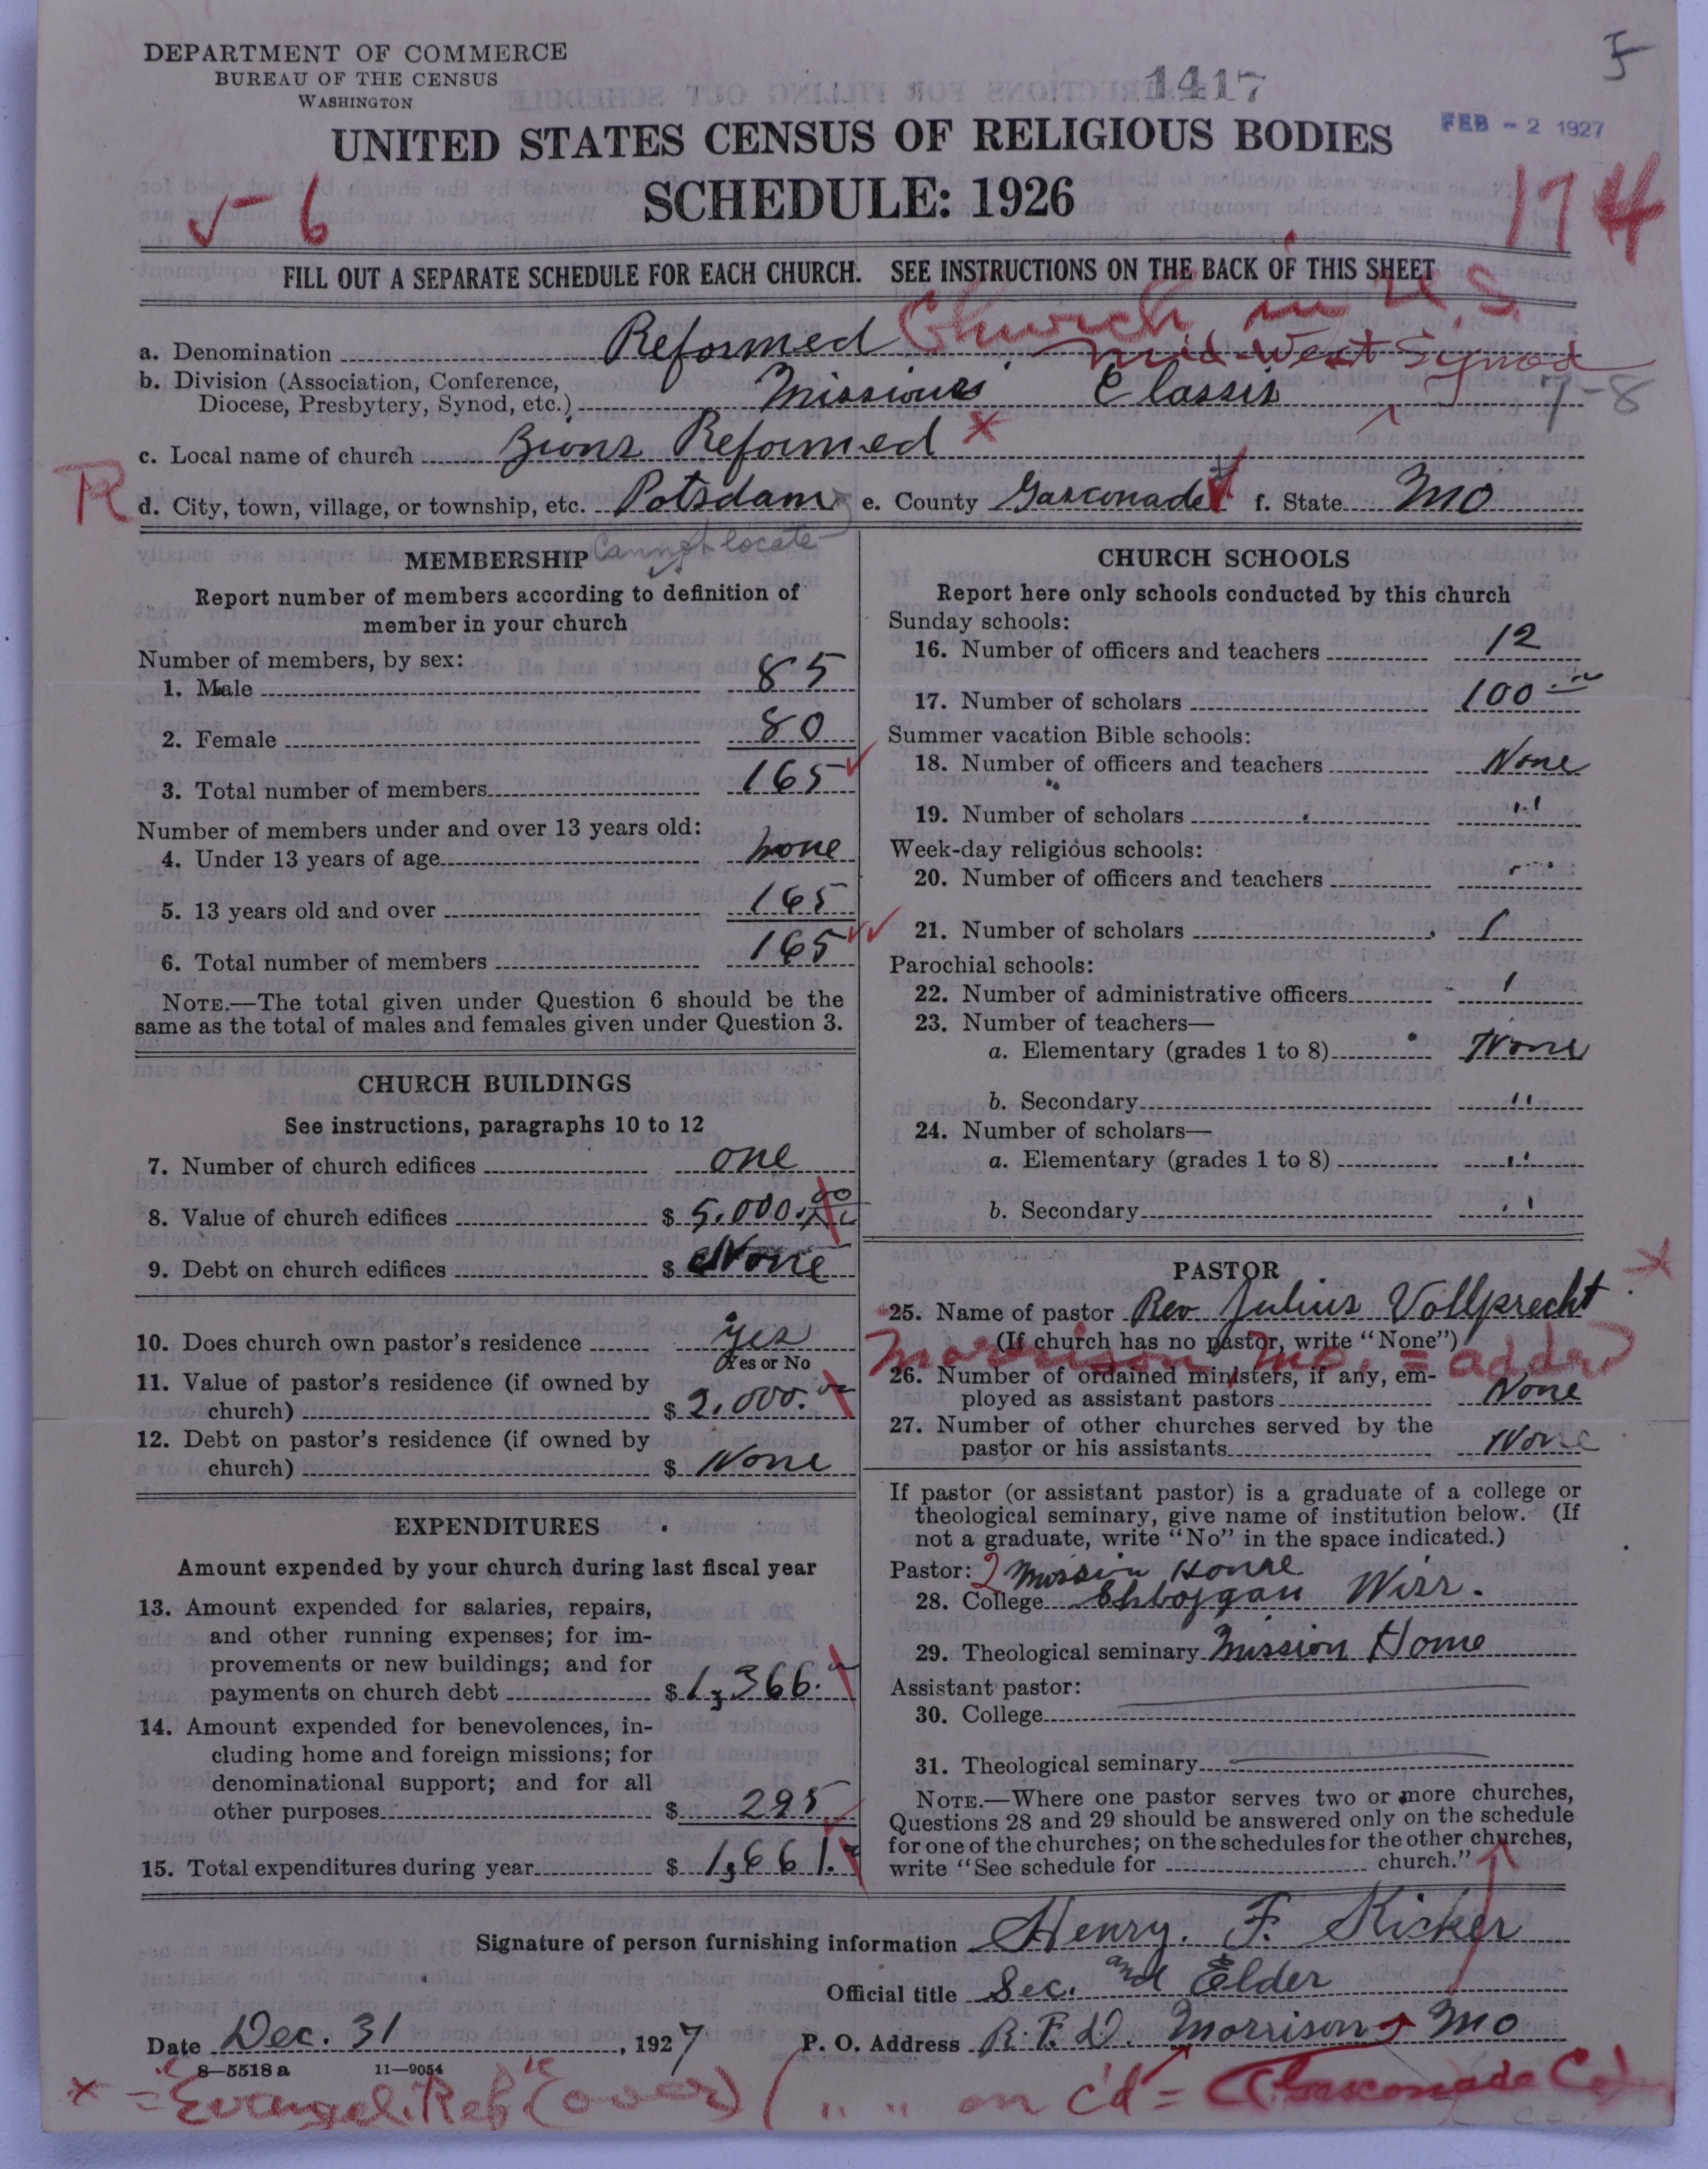 DEPARTMENT OF COMMERCE
BUREAU OF THE CENSUS
WASHINGTON
1417
FEB - 2 1927
UNITED STATES CENSUS OF RELIGIOUS BODIES
SCHEDULE: 1926
5-6
1174
FILL OUT A SEPARATE SCHEDULE FOR EACH CHURCH. SEE INSTRUCTIONS ON THE BACK OF THIS SHEET
a. Denomination Reformed Church in U.S.
Mid-West Synod
b. Division (Association, Conference, Diocese, Presbytery, Synod, etc.) Missouri Classis 7-8
c. Local name of church Zions Reformed x
R d. City, town, village, or township, etc. Potsdam e. County Gasconade f. State Mo
Cannot locate
MEMBERSHIP
Report number of members according to definition of
member in your church
Number of members, by sex:
1. Male 85
2. Female 80
3. Total number of members 165
Number of members under and over 13 years old:
4. Under 13 years of age none
5. 13 years old and over 165
6. Total number of members 165
NOTE.—The total given under Question 6 should be the
same as the total of males and females given under Question 3.
CHURCH BUILDINGS
See instructions, paragraphs 10 to 12
7. Number of church edifices one
8. Value of church edifices $ 5,000.00
9. Debt on church edifices $ None
10. Does church own pastor's residence yes
Yes or No
11. Value of pastor's residence (if owned by
church) $ 2,000.00
12. Debt on pastor's residence (if owned by
church) $ None
EXPENDITURES
Amount expended by your church during last fiscal year
13. Amount expended for salaries, repairs,
and other running expenses; for im-
provements or new buildings; and for
payments on church debt $ 1,366.
14. Amount expended for benevolences, in-
cluding home and foreign missions; for
denominational support; and for all
other purposes $ 295
15. Total expenditures during year $ 1,661.
CHURCH SCHOOLS
Report here only schools conducted by this church
Sunday schools:
16. Number of officers and teachers 12
17. Number of scholars 100
Summer vacation Bible schools:
18. Number of officers and teachers None
19. Number of scholars "
Week-day religious schools:
20. Number of officers and teachers "
21. Number of scholars
Parochial schools:
22. Number of administrative officers
23. Number of teachers—
a. Elementary (grades 1 to 8) None
b. Secondary "
24. Number of scholars—
a. Elementary (grades 1 to 8) "
b. Secondary "
PASTOR
25. Name of pastor Rev Julius Vollprecht x
(If church has no pastor, write "None")
Morrison Mo. = addr
26. Number of ordained ministers, if any, em-
ployed as assistant pastors None
27. Number of other churches served by the
pastor or his assistants None
If pastor (or assistant pastor) is a graduate of a college or
theological seminary, give name of institution below. (If
not a graduate, write "No" in the space indicated.)
Pastor: Mission House
28. College Shboygan Wis.
29. Theological seminary Mission Home
Assistant pastor:
30. College
31. Theological seminary
NOTE.—Where one pastor serves two or more churches,
Questions 28 and 29 should be answered only on the schedule
for one of the churches; on the schedules for the other churches,
write "See schedule for church."
Signature of person furnishing information Henry. F. Kicker
Official title Sec. and Elder
Date Dec. 31, 1927 P. O. Address R.F.D. Morrison Mo
8-5518 a 11-9054
x = "Evangel. Ref" (over) ( " " on c'd = Gasconade Co.)